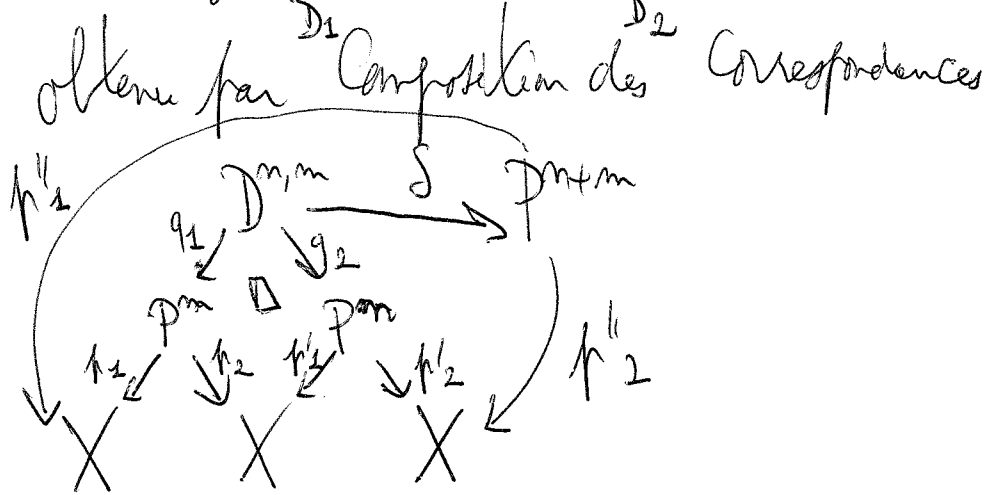 D1 D2
obtenu par Composition des Correspondances
p''1 D^{n,m} δ P^{n+m}
q1 q2
P^m □ P^n
p1 p2 p'1 p'2 p''2
X X X